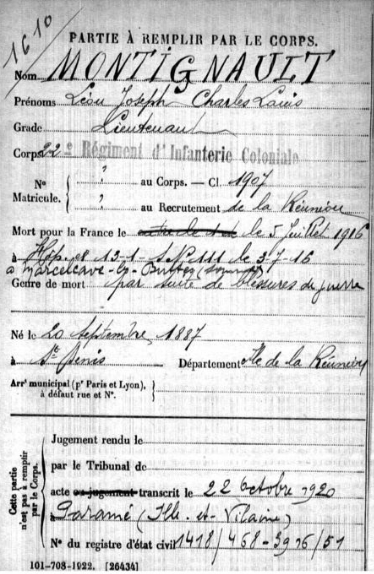 1610
PARTIE À REMPLIR PAR LE CORPS.
Nom MONTIGNAULT
Prénoms Léon Joseph Charles Louis
Grade Lieutenant
Corps 22e Régiment d'Infanterie Coloniale
N° ? au Corps. — Cl. 1907
Matricule. ? au Recrutement de la Réunion
Mort pour la France le le 5 Juillet 1916
à Hôp. 13-1 S.P. 111 le 3-7-16
à Marcelcave-les-Buttes (Somme)
Genre de mort par suite de blessures de guerre
Né le 20 septembre 1887
à St Denis Département Ile de la Réunion
Arrt municipal (pr Paris et Lyon),
à défaut rue et N°.
Cette partie
n'est pas à remplir
par le Corps.
Jugement rendu le
par le Tribunal de
acte ou jugement transcrit le 22 octobre 1920
à Paramé (Ille-et-Vilaine)
N° du registre d'état civil 1418/468-3976/51
101-708-1922. [26434]